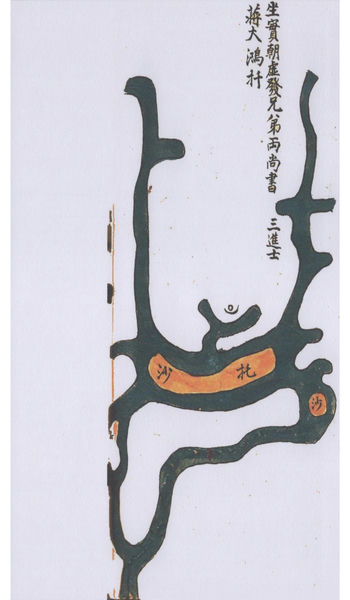 坐實朝虛發兄弟两尚書 三進士
蔣大鴻扦
托沙
沙